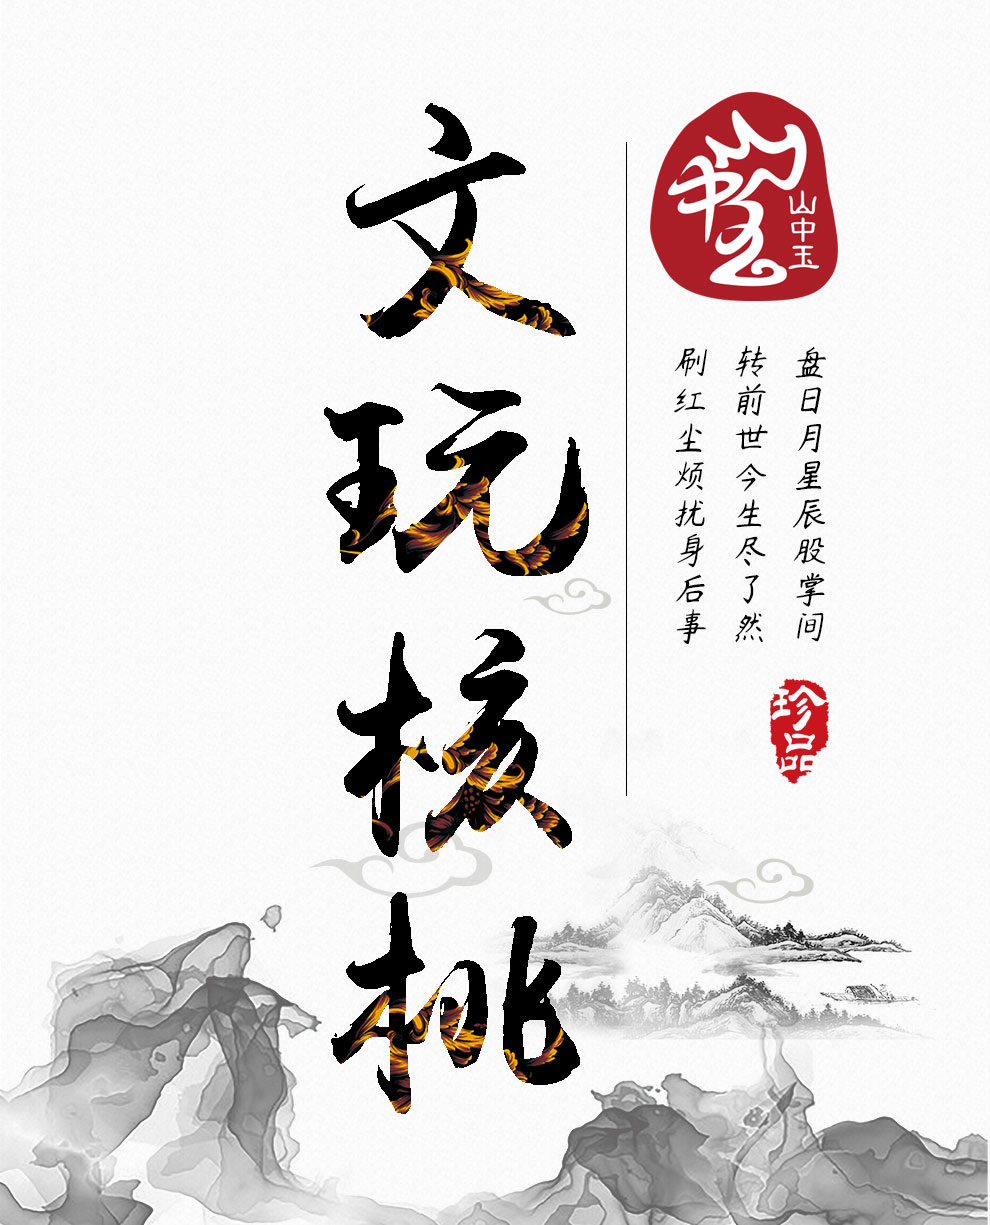 山中玉
山中玉
盘日月星辰股掌间
转前世今生尽了然
刷红尘烦扰身后事
珍品
文玩核桃